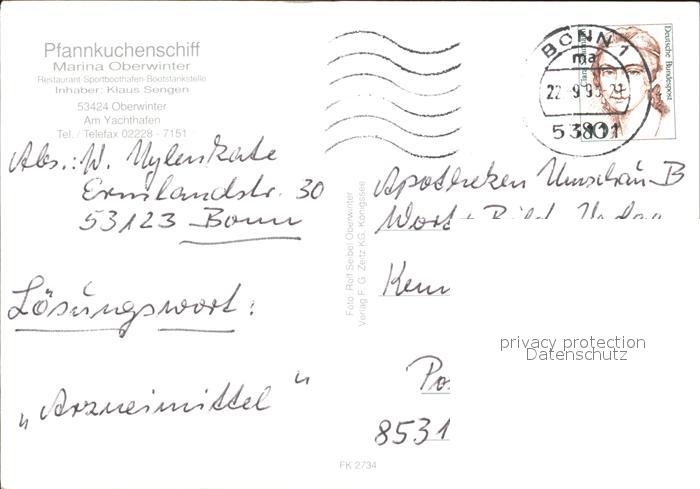 Pfannkuchenschiff
Marina Oberwinter
Restaurant-Sportboothafen-Bootstankstelle
Inhaber: Klaus Sengen
53424 Oberwinter
Am Yachthafen
Tel. / Telefax 02228 - 7151
BONN 1
ma
22.-9.9
53111
Deutsche Bundespost
Abs.: W. Uylenkate
Ermlandstr. 30
53123 Bonn
Lösungswort:
„Arzneimittel"
Foto: Rolf Seibel Oberwinter
Verlag F. G. Zeitz KG, Königssee
Apotheken Umschau B
Wort + Bild
Kenn
Po.
8531
privacy protection
Datenschutz
FK 2734